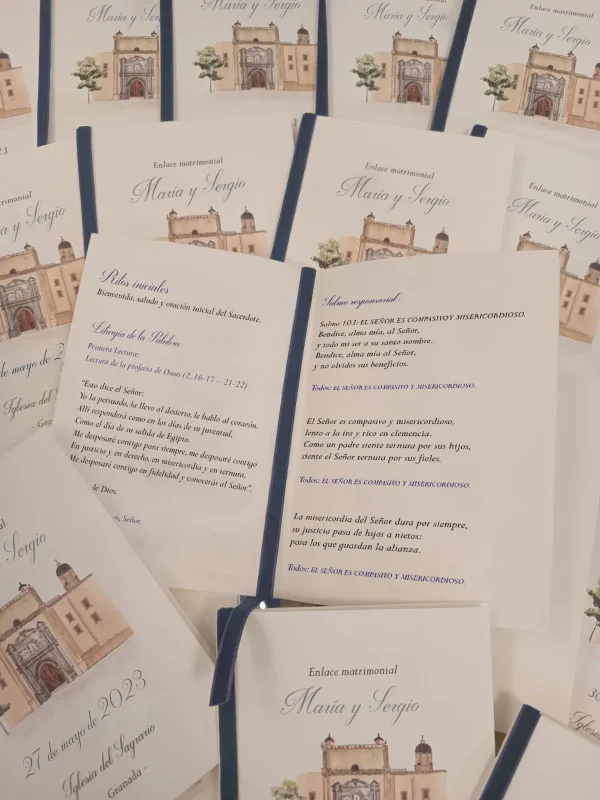 María y Sergio
María y Sergio
María y Sergio
Enlace matrimonial
María y Sergio
Enlace matrimonial
María y Sergio
Enlace matrimonial
María y Sergio
Enlace matrimonial
María y Sergio
y Sergio
de mayo de 2
Iglesia del
Ritos iniciales
Bienvenida, saludo y oración inicial del Sacerdote.
Liturgia de la Palabra
Primera Lectura:
Lectura de la profecía de Oseas (2, 16-17 – 21-22)
"Esto dice el Señor:
Yo la persuado, la llevo al desierto, le hablo al corazón.
Allí responderá como en los días de su juventud,
Como el día de su salida de Egipto.
Me desposaré contigo para siempre, me desposaré contigo
En justicia y en derecho, en misericordia y en ternura.
Me desposaré contigo en fidelidad y conocerás al Señor".
de Dios.
Señor.
Salmo responsorial:
Salmo 103: EL SEÑOR ES COMPASIVO Y MISERICORDIOSO.
Bendice, alma mía, al Señor,
y todo mi ser a su santo nombre.
Bendice, alma mía al Señor,
y no olvides sus beneficios.
Todos: EL SEÑOR ES COMPASIVO Y MISERICORDIOSO.
El Señor es compasivo y misericordioso,
lento a la ira y rico en clemencia.
Como un padre siente ternura por sus hijos,
siente el Señor ternura por sus fieles.
Todos: EL SEÑOR ES COMPASIVO Y MISERICORDIOSO.
La misericordia del Señor dura por siempre,
su justicia pasa de hijos a nietos:
para los que guardan la alianza.
Todos: EL SEÑOR ES COMPASIVO Y MISERICORDIOSO.
Sergio
27 de mayo de 2023
Iglesia del Sagrario
Granada -
Enlace matrimonial
María y Sergio